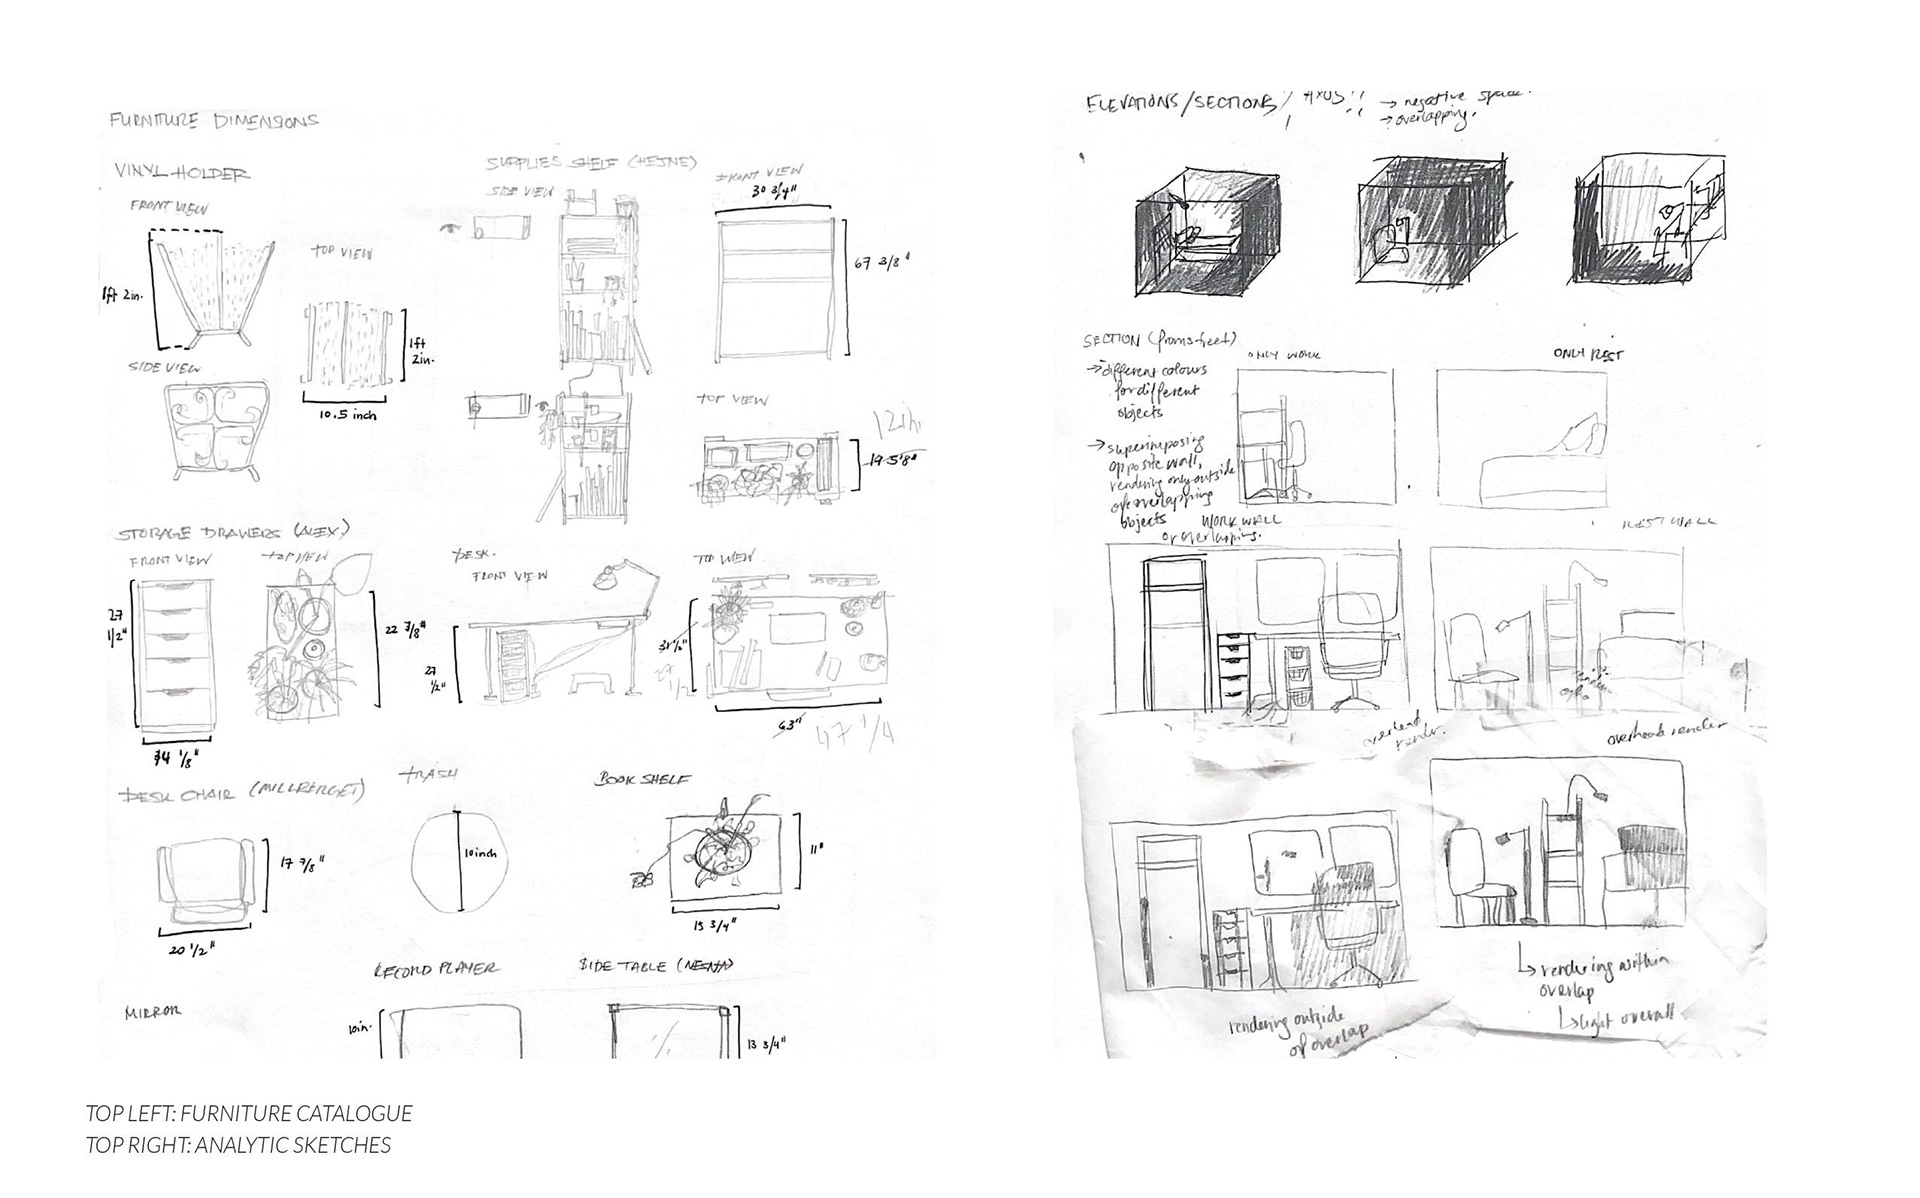 FURNITURE DIMENSIONS
VINYL HOLDER
FRONT VIEW
1ft 2in.
TOP VIEW
1ft
2in.
10.5 inch
SIDE VIEW
SUPPLIES SHELF (HEJNE)
SIDE VIEW
FRONT VIEW
30 3/4"
67 3/8"
TOP VIEW
12in
19 5/8"
STORAGE DRAWERS (ALEX)
FRONT VIEW
27
1/2"
14 1/8"
TOP VIEW
22 7/8"
DESK.
FRONT VIEW
27
1/2"
TOP VIEW
31 1/2"
27
1/2
63"
47 1/4
DESK CHAIR (MILLBERGET)
17 7/8"
20 1/2"
TRASH
10inch
BOOK SHELF
11"
15 3/4"
MIRROR
RECORD PLAYER
10in.
SIDE TABLE (NESNA)
13 3/4"
ELEVATIONS/SECTIONS/ AXOS!!
→ negative space.
→ overlapping.
SECTION (from street)
→ different colours
for different
objects
→ superimposing
opposite wall,
rendering only outside
of overlapping
objects
ONLY WORK
ONLY REST
WORK WALL
or overlapping.
REST WALL
overhead
render.
overhead render
rendering outside
of overlap
rendering within
overlap
light overall
TOP LEFT: FURNITURE CATALOGUE
TOP RIGHT: ANALYTIC SKETCHES